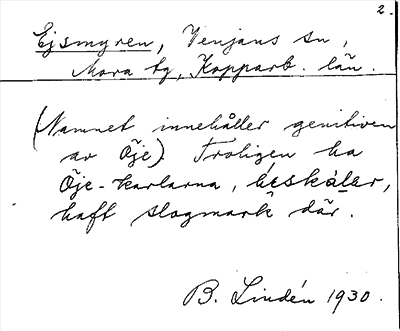 2.
Ejsmyren, Venjans sn,
Mora tg, Kopparb. län.
(Namnet innehåller genitiven
av Öje) Troligen ha
Öje-karlarna,
haft slogmark där.
B. Lindén 1930.